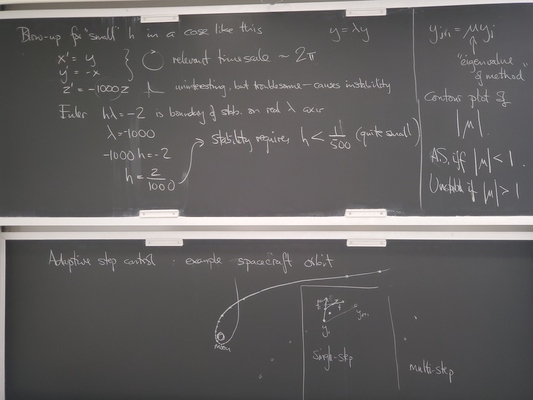 Blow-up for "small" h in a case like this
y' = λy
x' = y
y' = -x
z' = -1000z
relevant timescale ~ 2π
uninteresting, but troublesome - causes instability
Euler hλ = -2 is boundary of stab. on real λ axis
λ = -1000
-1000 h = -2
h = 2/1000
→ stability requires h < 1/500 (quite small)
y_{j+1} = μy_j
"eigenvalue of method"
Contour plot of
|μ|
A.S. iff |μ| < 1
Unstable if |μ| > 1
Adaptive step control: example spacecraft orbit
moon
y_j
y_{j+1}
single-step
multi-step